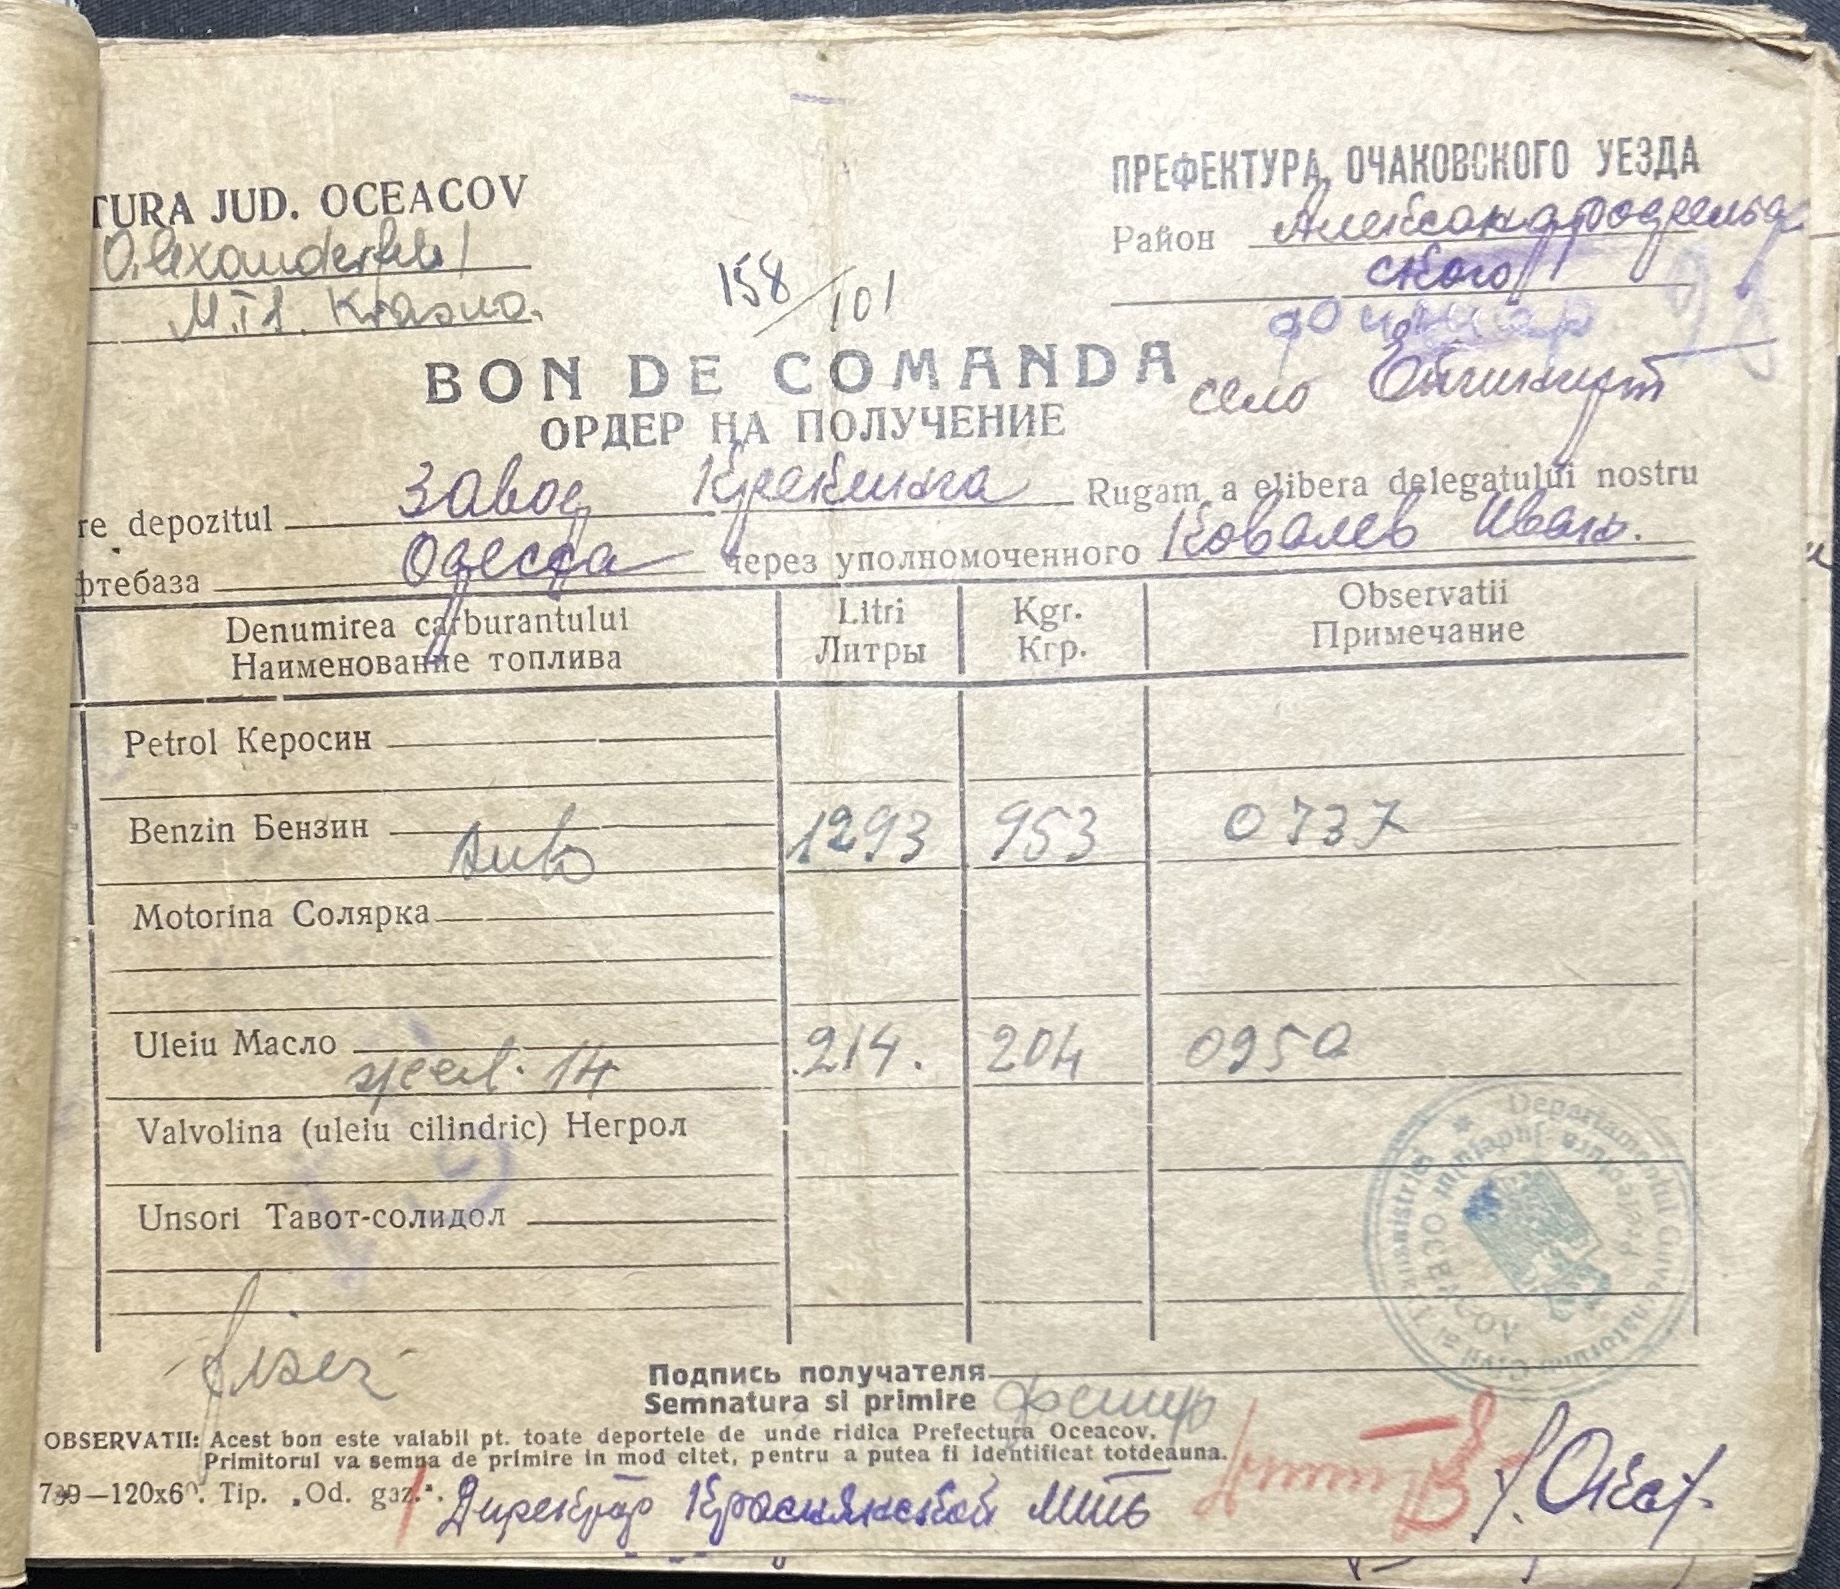 TURA JUD. OCEACOV
ПРЕФЕКТУРА ОЧАКОВСКОГО УЕЗДА
Alexanderfeld
Район Александрфельд
ского
M.T.S. Krasna.
158/101
BON DE COMANDA
село
ОРДЕР НА ПОЛУЧЕНИЕ
re depozitul завод Крекинга Rugam a elibera delegatului nostru
фтебаза Одесса через уполномоченного Ковалев Иван.
Denumirea carburantului Litri Kgr. Observatii
Наименование топлива Литры Кгр. Примечание
Petrol Керосин
Benzin Бензин Auto 1293 953 0737
Motorina Солярка
Uleiu Масло 14 214. 204 0950
Valvolina (uleiu cilindric) Негрол
Unsori Тавот-солидол
Departamentul Guvernatorului Civil al Transnistriei
Prefectura Judeţului OCEACOV
Подпись получателя
Semnatura si primire
OBSERVATII: Acest bon este valabil pt. toate deportele de unde ridica Prefectura Oceacov.
Primitorul va semna de primire in mod citet, pentru a putea fi identificat totdeauna.
739—120x60. Tip. „Od. gaz.".
Директор Краснянской МТС